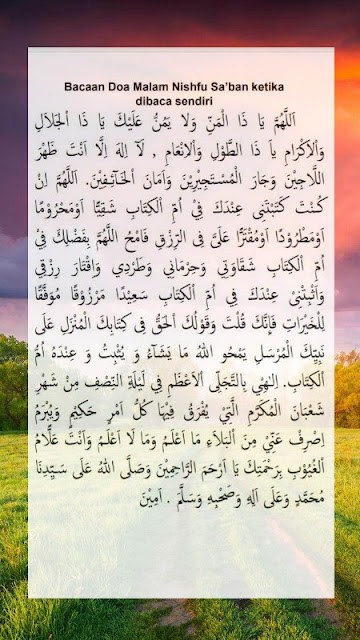 Bacaan Doa Malam Nishfu Sa'ban ketika
dibaca sendiri
اَللّٰهُمَّ يَا ذَا الْمَنِّ وَلَا يَمُنُّ عَلَيْكَ يَا ذَا الْجَلَالِ
وَاْلإِكْرَامِ يَا ذَا الطَّوْلِ وَاْلإِنْعَامِ , لَا اِلهَ اِلَّا اَنْتَ ظَهْرَ
اللَّاجِيْنَ وَجَارَ الْمُسْتَجِيْرِيْنَ وَاَمَانَ الْخَائِفِيْنَ. اَللّٰهُمَّ اِنْ
كُنْتَ كَتَبْتَنِى عِنْدَكَ فِيْ اُمِّ الْكِتَابِ شَقِيًّا اَوْمَحْرُوْمًا
اَوْمَطْرُوْدًا اَوْمُقْتَرًّا عَلَىَّ فِى الرِّزْقِ فَامْحُ اللّٰهُمَّ بِفَضْلِكَ فِيْ
اُمِّ الْكِتَابِ شَقَاوَتِي وَحِرْمَانِي وَطَرْدِي وَاقْتَارَ رِزْقِي
وَاَثْبِتْنِى عِنْدَكَ فِي اُمِّ الْكِتَابِ سَعِيْدًا مَرْزُوْقًا مُوَفَّقًا
لِلْخَيْرَاتِ فَإِنَّكَ قُلْتَ وَقَوْلُكَ الْحَقُّ فِى كِتَابِكَ الْمُنْزَلِ عَلَى
نَبِيِّكَ الْمُرْسَلِ يَمْحُو اللهُ مَا يَشَآءُ وَ يُثْبِتُ وَ عِنْدَهُ اُمُّ
الْكِتَابِ. اِلهِيْ بِالتَّجَلِّى اْلاَعْظَمِ فِي لَيْلَةِ النِّصْفِ مِنْ شَهْرِ
شَعْبَانَ الْمُكَرَّمِ الَّتِيْ يُفْرَقُ فِيْهَا كُلُّ اَمْرٍ حَكِيْمٍ وَيُبْرَمُ
اِصْرِفْ عَنِّيْ مِنَ الْبَلَاءِ مَا اَعْلَمُ وَمَا لَا اَعْلَمُ وَاَنْتَ عَلَّامُ
الْغُيُوْبِ بِرَحْمَتِكَ يَا اَرْحَمَ الرَّاحِمِيْنَ وَصَلَّى اللهُ عَلَى سَيِّدِنَا
مُحَمَّدٍ وَعَلَى اٰلِهِ وَصَحْبِهِ وَسَلَّمَ . اَمِيْنَ